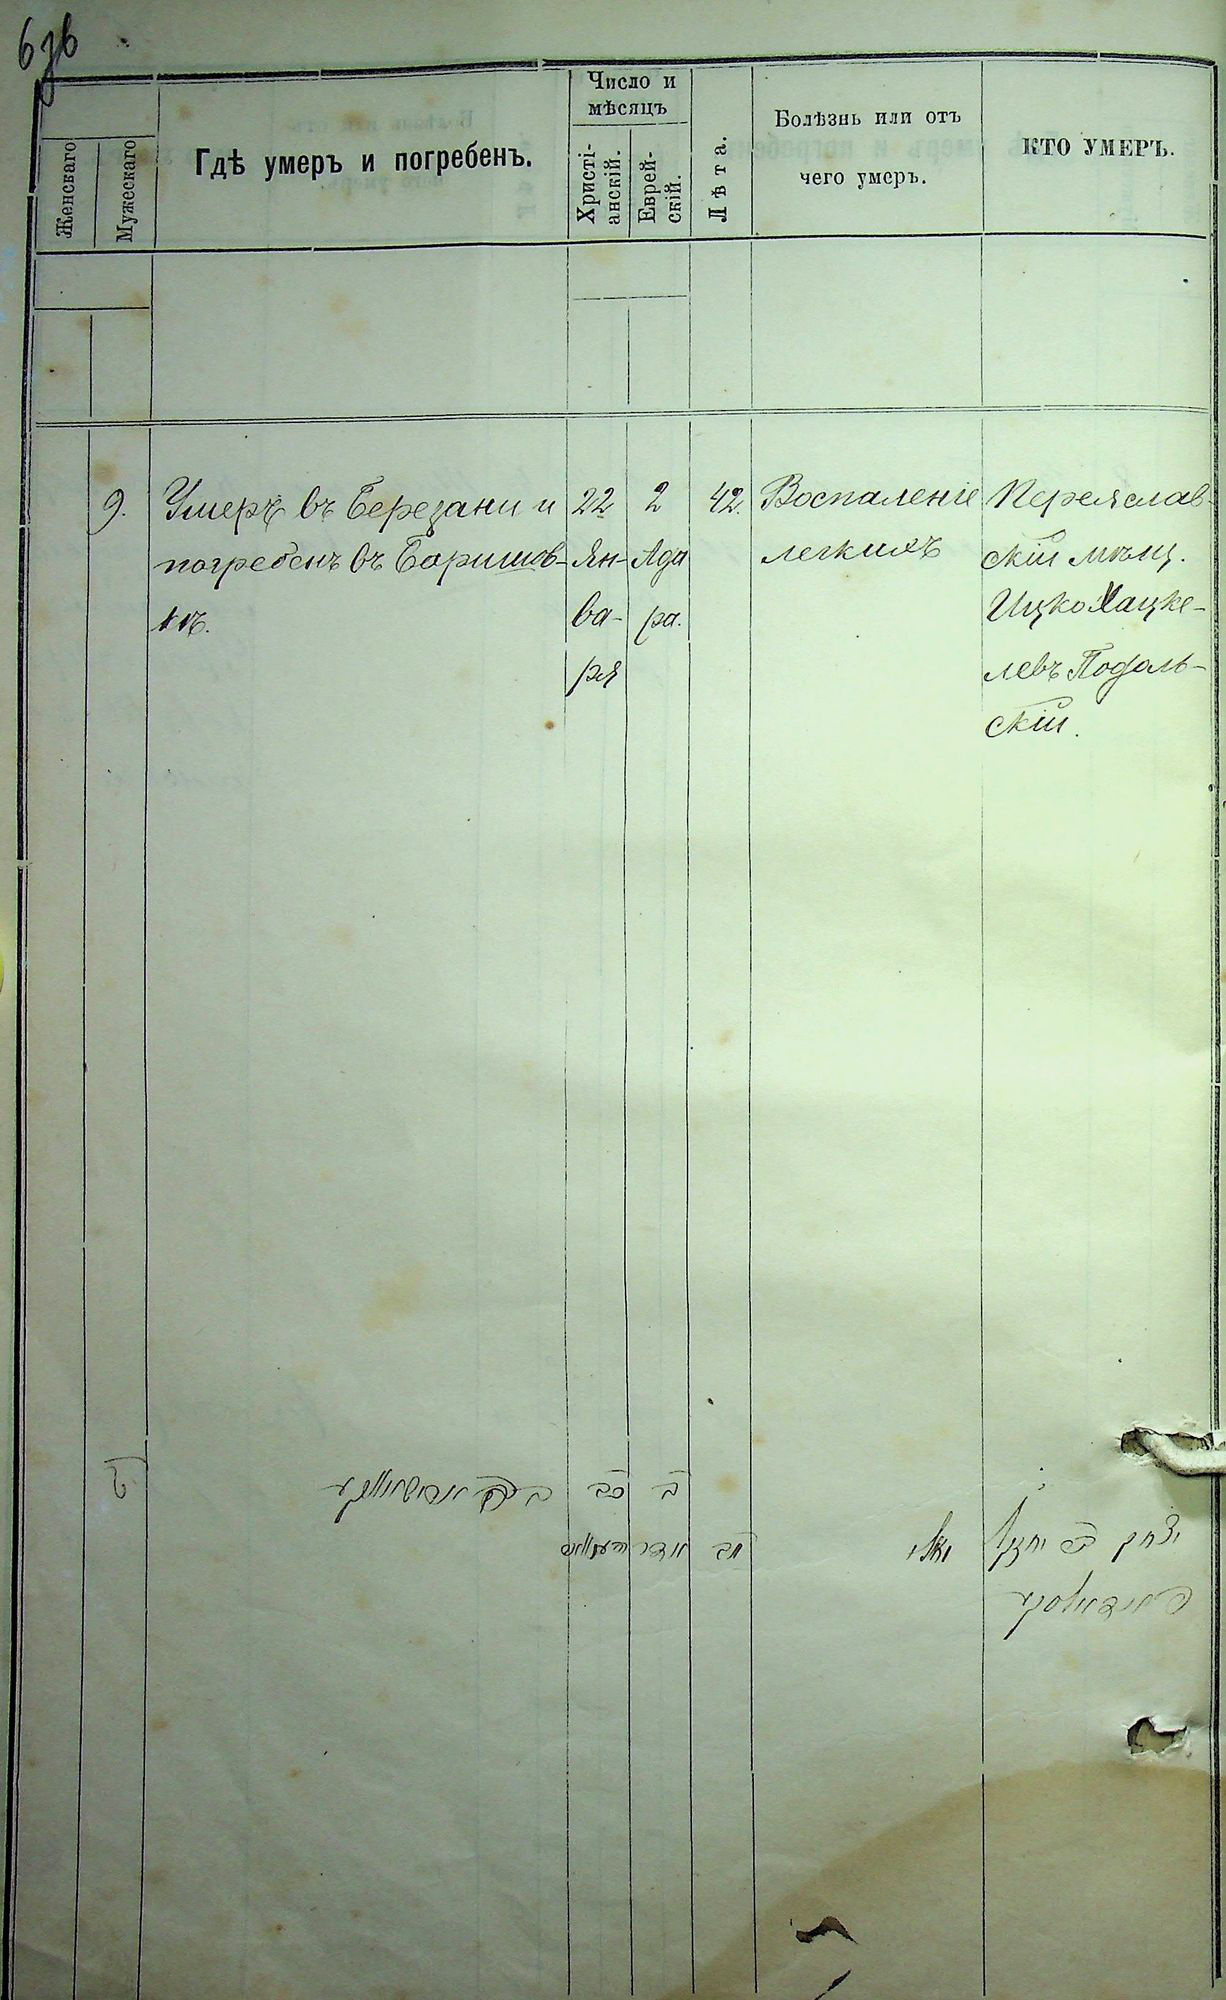 Женскаго
Мужескаго
Гдѣ умеръ и погребенъ.
Число и
мѣсяцъ
Христі-
анскій.
Еврей-
скій.
Лѣта.
Болѣзнь или отъ
чего умеръ.
КТО УМЕРЪ.
9.
Умеръ въ Березани и
погребенъ въ Баришов-
кѣ.
22
Ян-
ва-
ря
2
Ада
ра.
42.
Воспаленіе
легкихъ
Переяслав-
скій мѣщ.
Ицко Хацке-
левъ Подоль-
скій.
ט
כב
ב
אדר
מב
יצחק